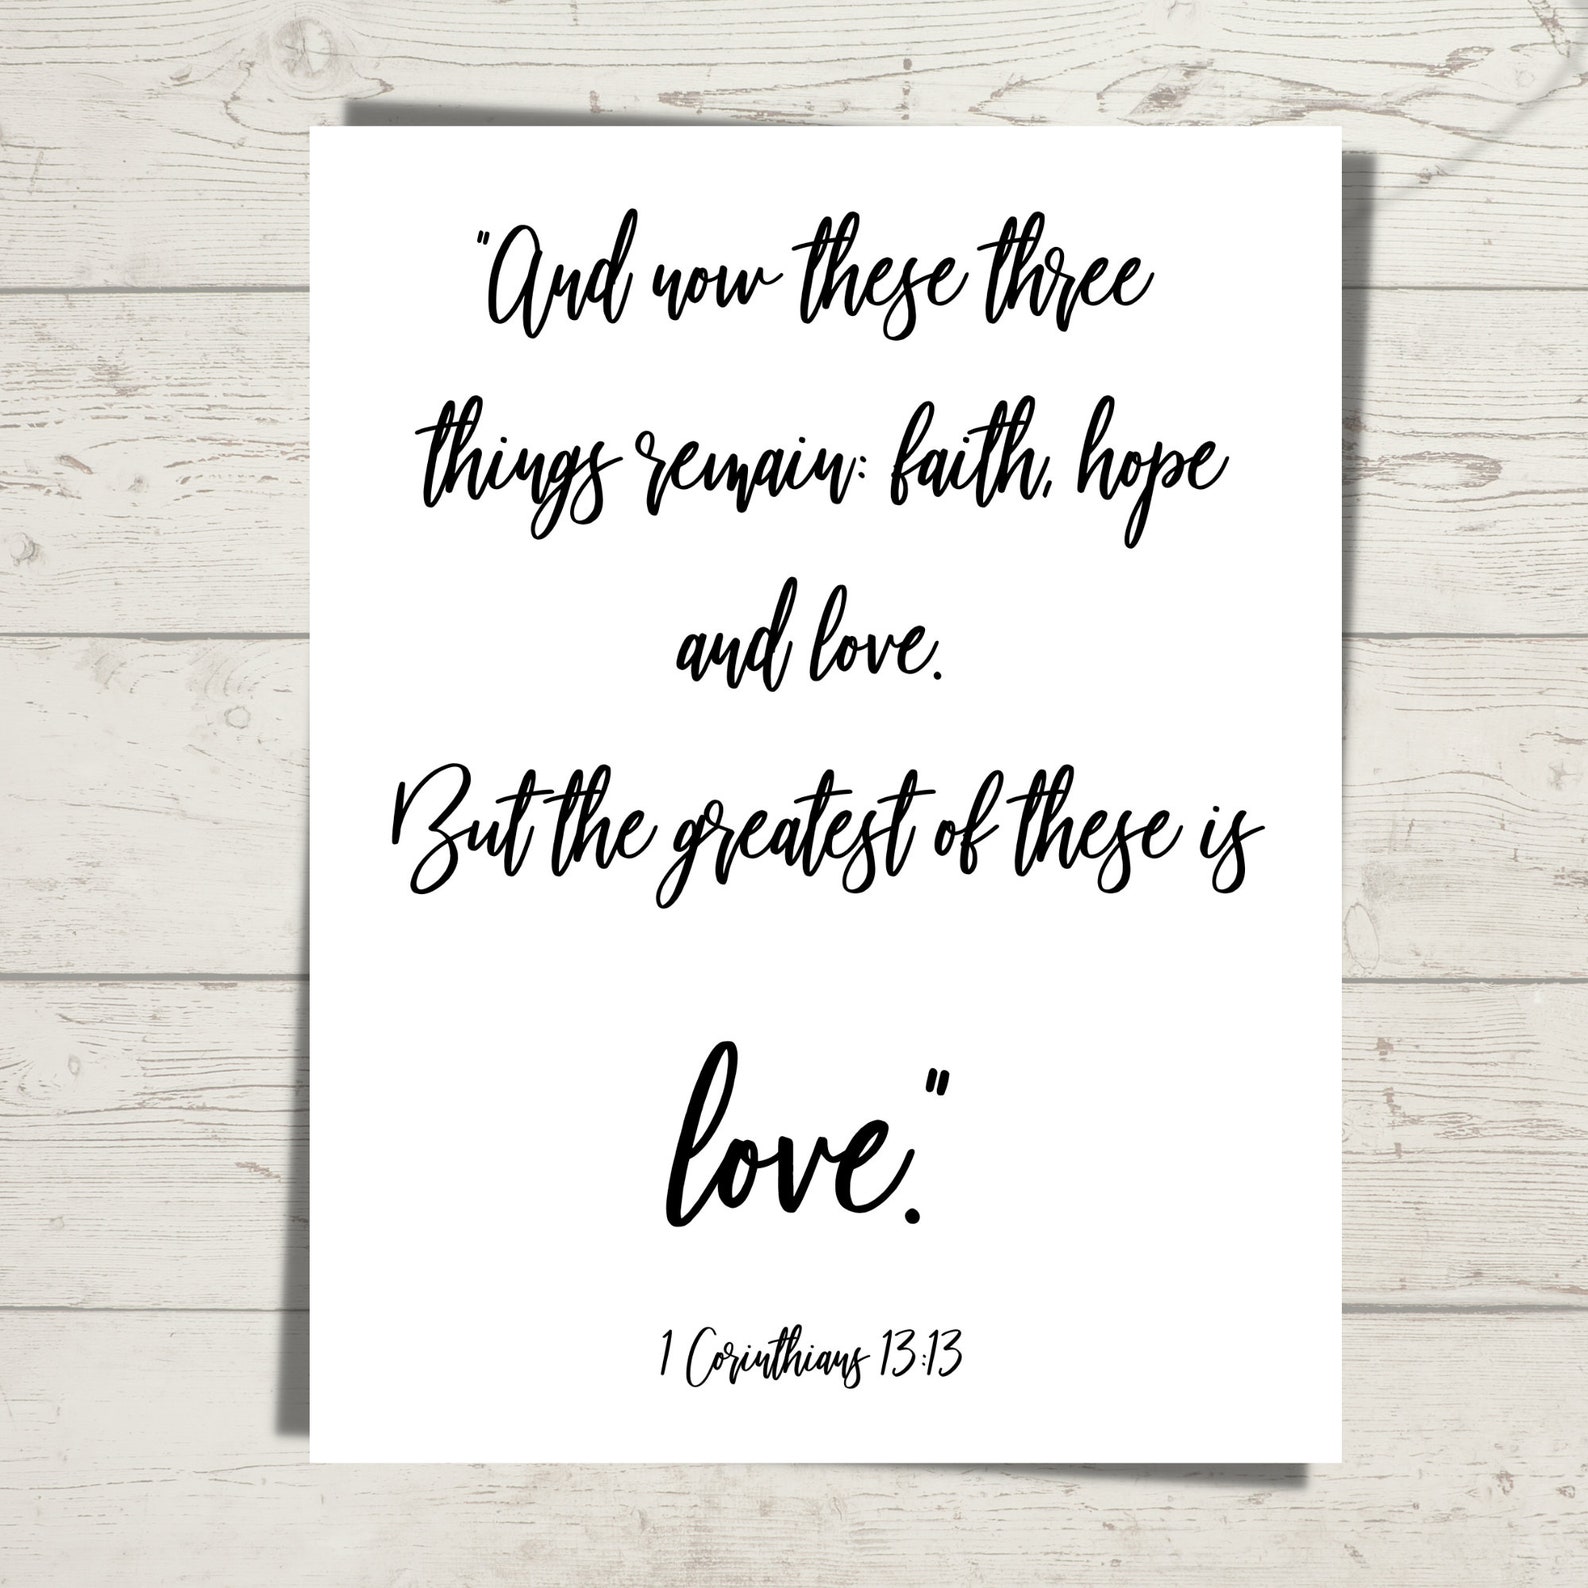 "And now these three
things remain: faith, hope
and love.
But the greatest of these is
love."
1 Corinthians 13:13